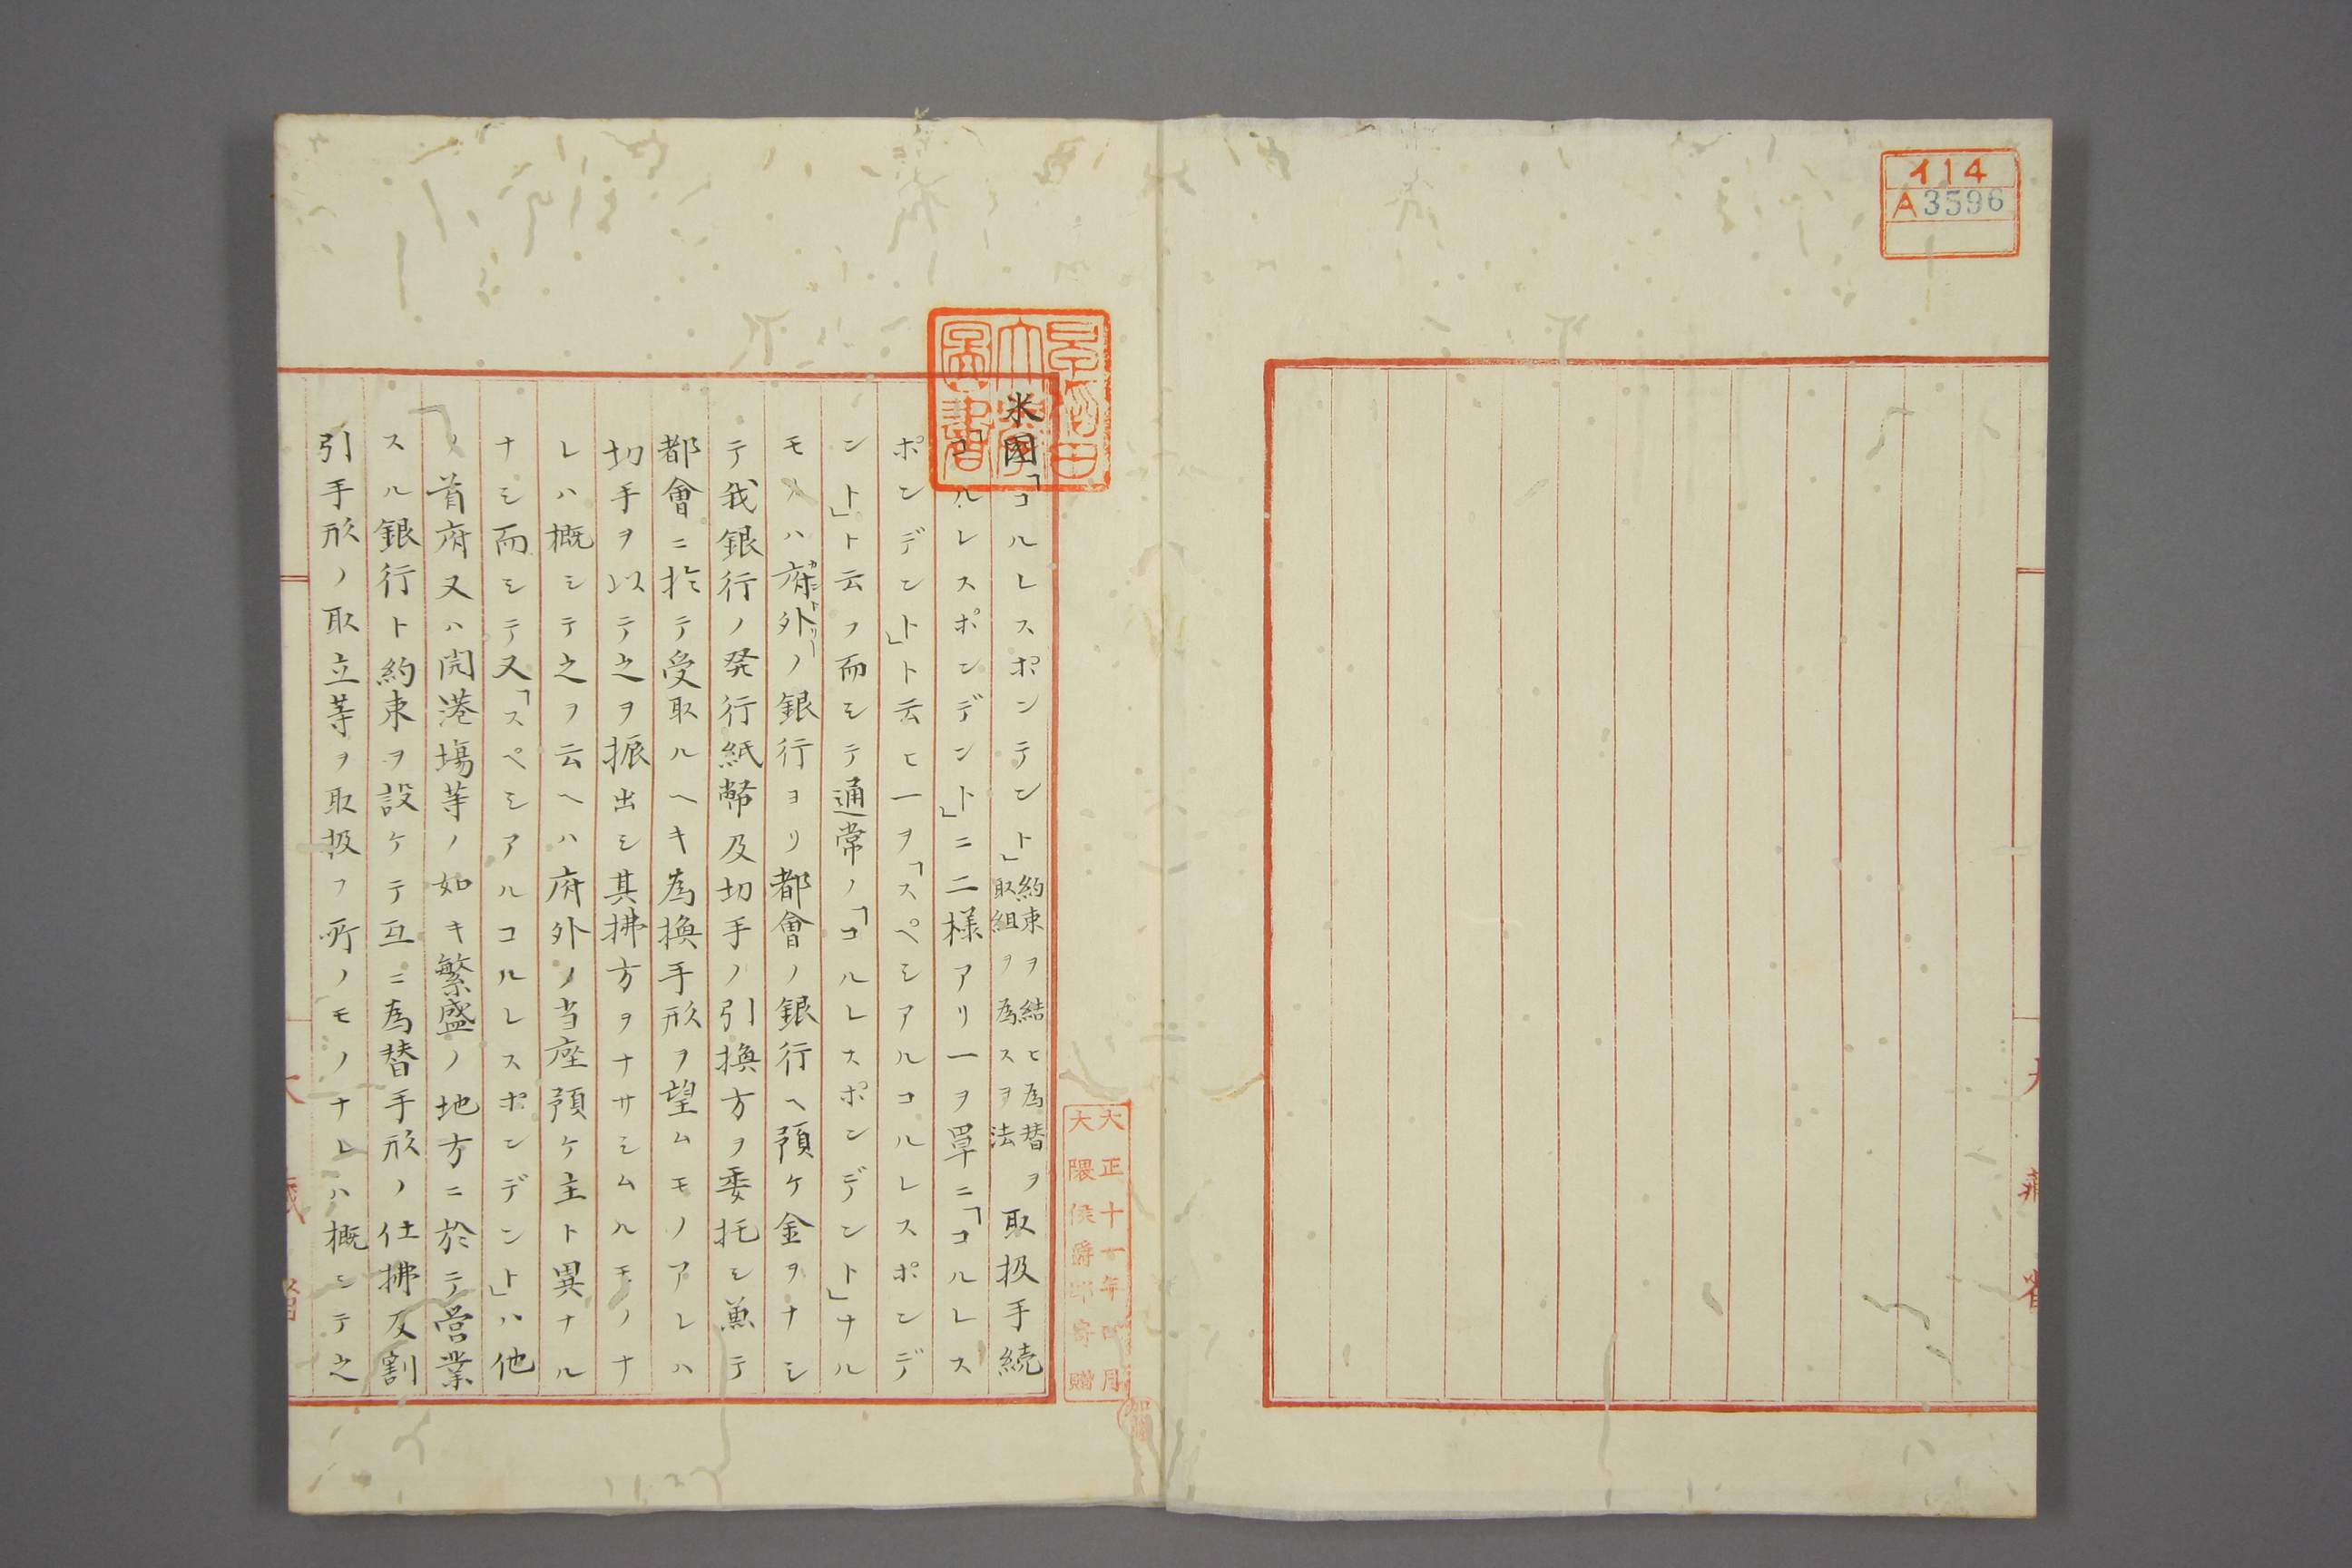 イ14
A3596
米国「コルレスポンテント」約束ヲ結ヒ為替取組ヲ為スヲ法ヲ取扱手続
「コルレスポンデント」ニ二様アリ一ヲ単ニ「コルレス
ポンデント」ト云ヒ一ヲ「スペシアルコルレスポンデ
ント」ト云フ而シテ通常ノ「コルレスポンデント」ナル
モノハ府外ノ銀行ヨリ都會ノ銀行ヘ預ケ金ヲナシ
カントリー
テ我銀行ノ発行紙幣及切手ノ引換方ヲ委托シ兼テ
都會ニ於テ受取ルヘキ為換手形ヲ望ムモノアレハ
切手ヲ以テ之ヲ振出シ其拂方ヲナサシムルモノナ
レハ概シテ之ヲ云ヘハ府外ノ当座預ケ主ト異ナル
ナシ而シテ又「スペシアルコルレスポンデント」ハ他
ノ首府又ハ開港場等ノ如キ繁盛ノ地方ニ於テ営業
スル銀行ト約束ヲ設ケテ互ニ為替手形ノ仕拂及割
引手形ノ取立等ヲ取扱フ所ノモノナレハ概シテ之
大正十一年四月
大隈侯爵邸寄贈
大藏省
大藏省